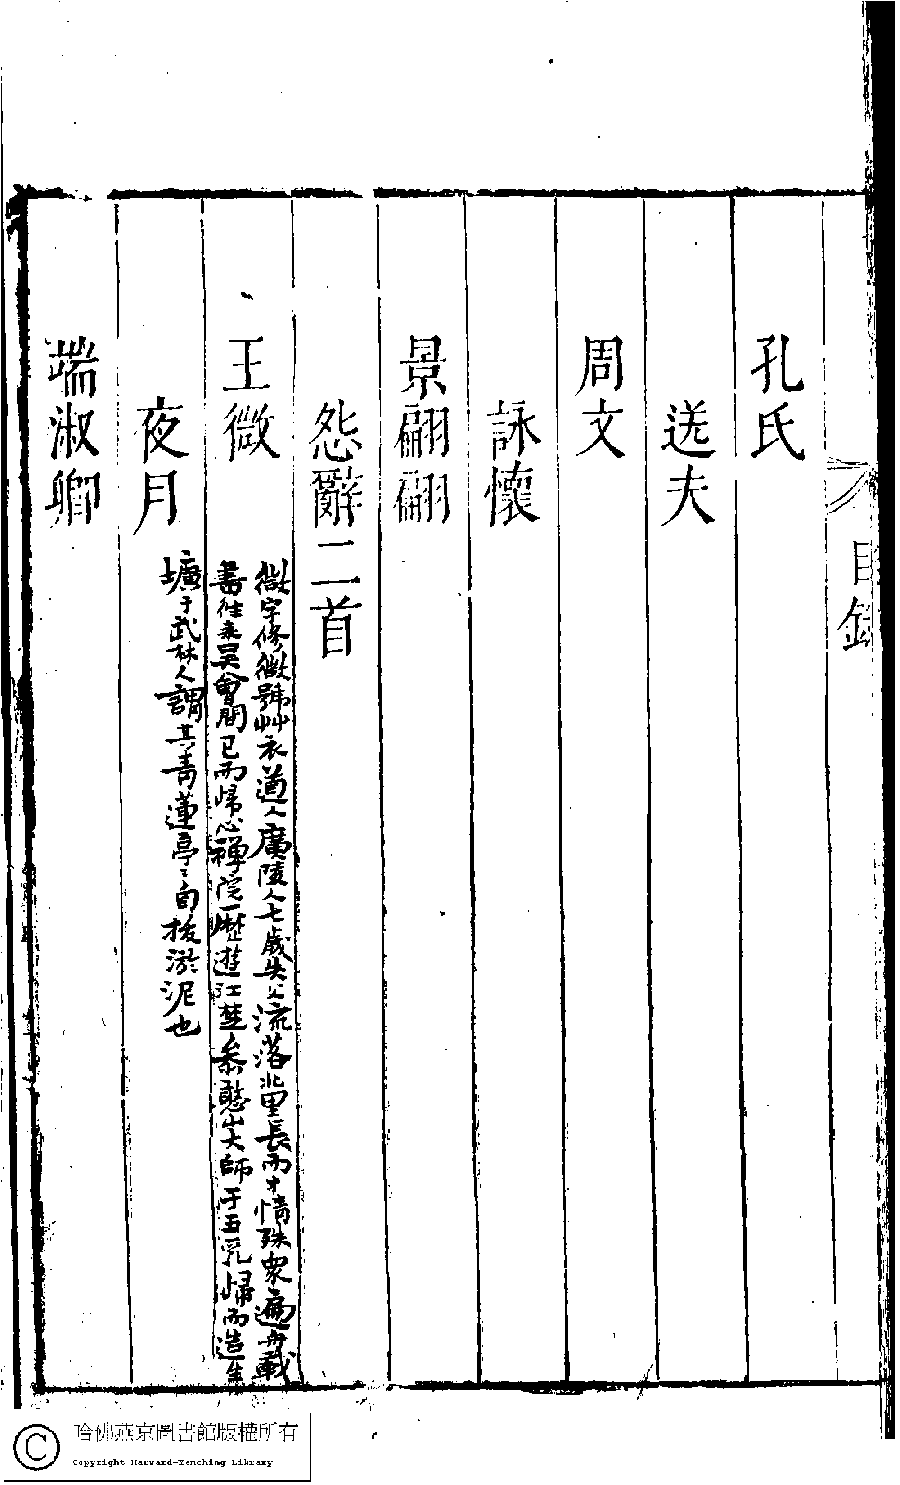 目錄
孔氏
送夫
周文
詠懷
景翩翩
怨辭二首
王微
微字修微號艸衣道人廣陵人七歲失父流落北里長而才情殊衆扁舟載
書往來吳會間已而歸心禪院歷遊江楚參憨山大師于五乳歸而造生
壙于武林人謂其青蓮亭亭自拔淤泥也
夜月
端淑卿
哈佛燕京圖書館版權所有
Copyright Harvard-Yenching Library